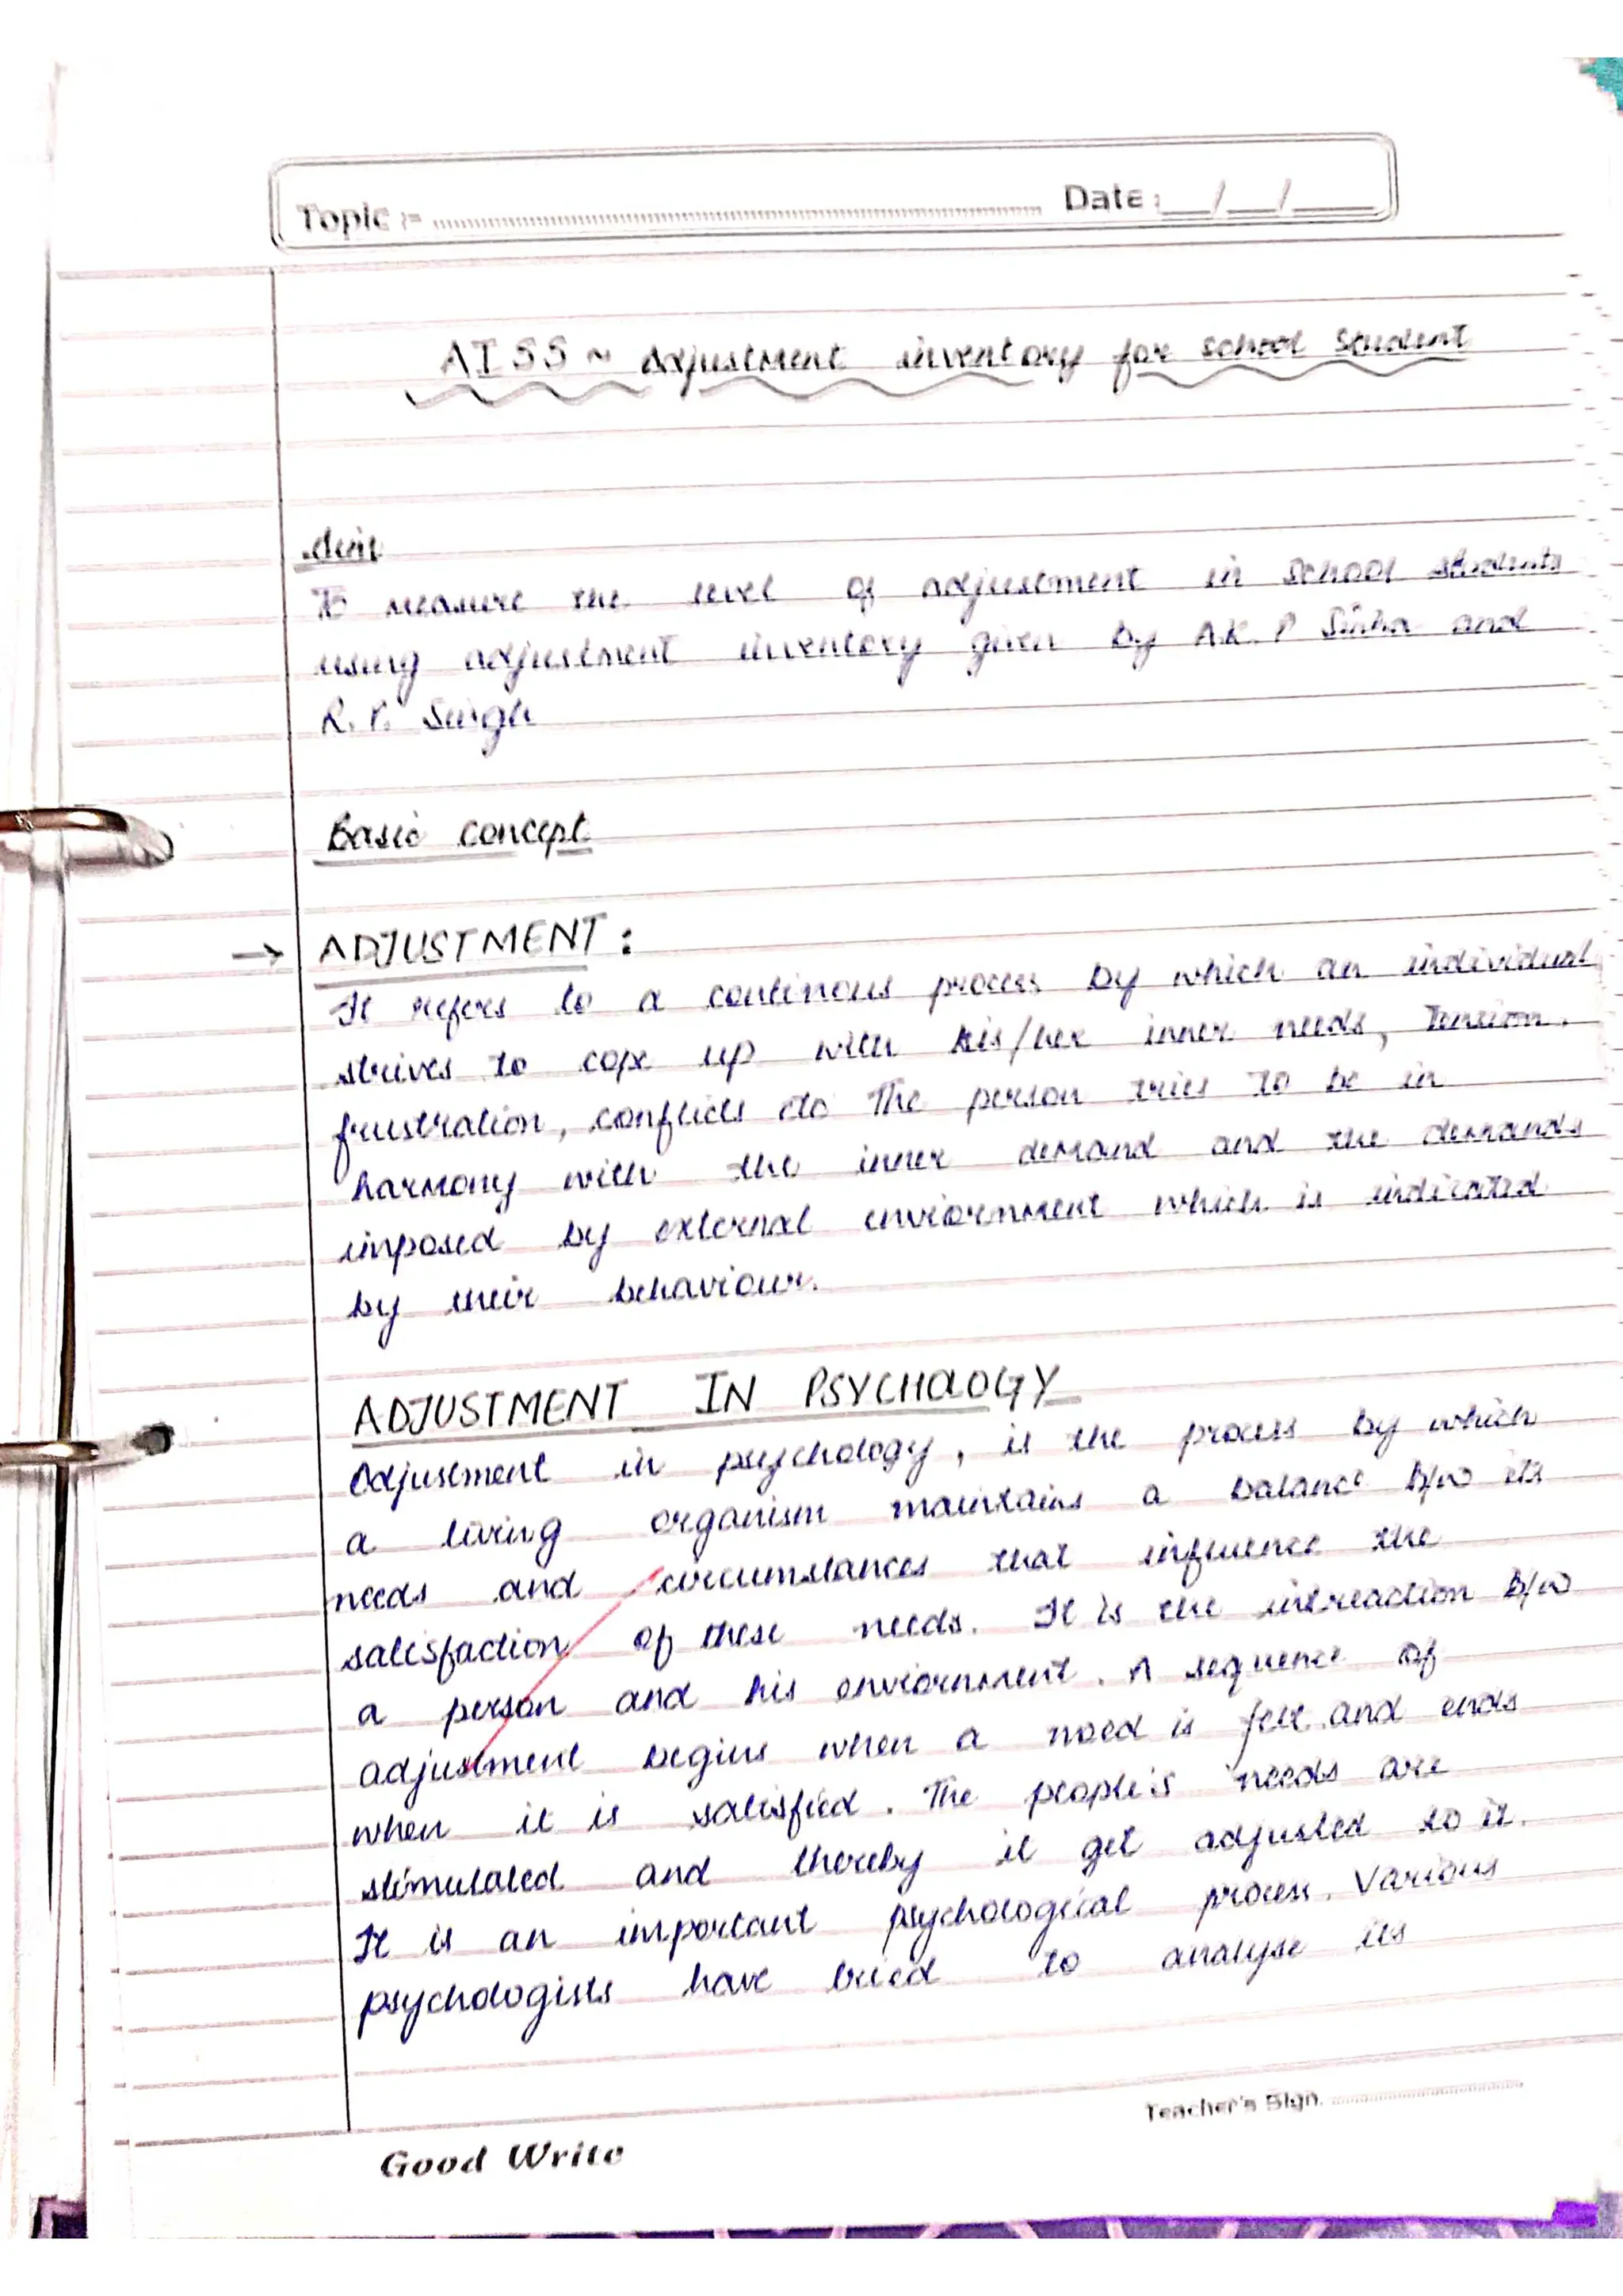 Topic :- Date : __/__/____
AISS ~ Adjustment inventory for school student
Aim
To measure the level of adjustment in school students
using adjustment inventory given by A.K.P Sinha and
R.P. Singh
Basic concept
→ ADJUSTMENT :
It refers to a continous process by which an individual
strives to cope up with his/her inner needs, Tension,
frustration, conflicts etc The person tries to be in
harmony with the inner demand and the demands
imposed by external enviornment which is indicated
by their behaviour.
ADJUSTMENT IN PSYCHOLOGY
Adjustment in psychology, is the process by which
a living organism maintains a balance b/w its
needs and circumstances that influence the
satisfaction of these needs. It is the intreaction b/w
a person and his enviornment. A sequence of
adjustment begins when a need is felt and ends
when it is satisfied. The people's needs are
stimulated and thereby it get adjusted to it.
It is an important psychological process. Various
psychologists have tried to analyse its
Teacher's Sign.
Good Write